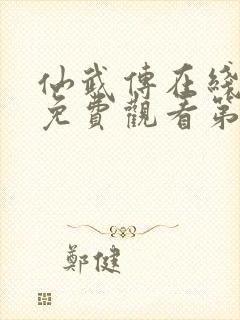 仙武傳在綫
免費觀看第
鄭健